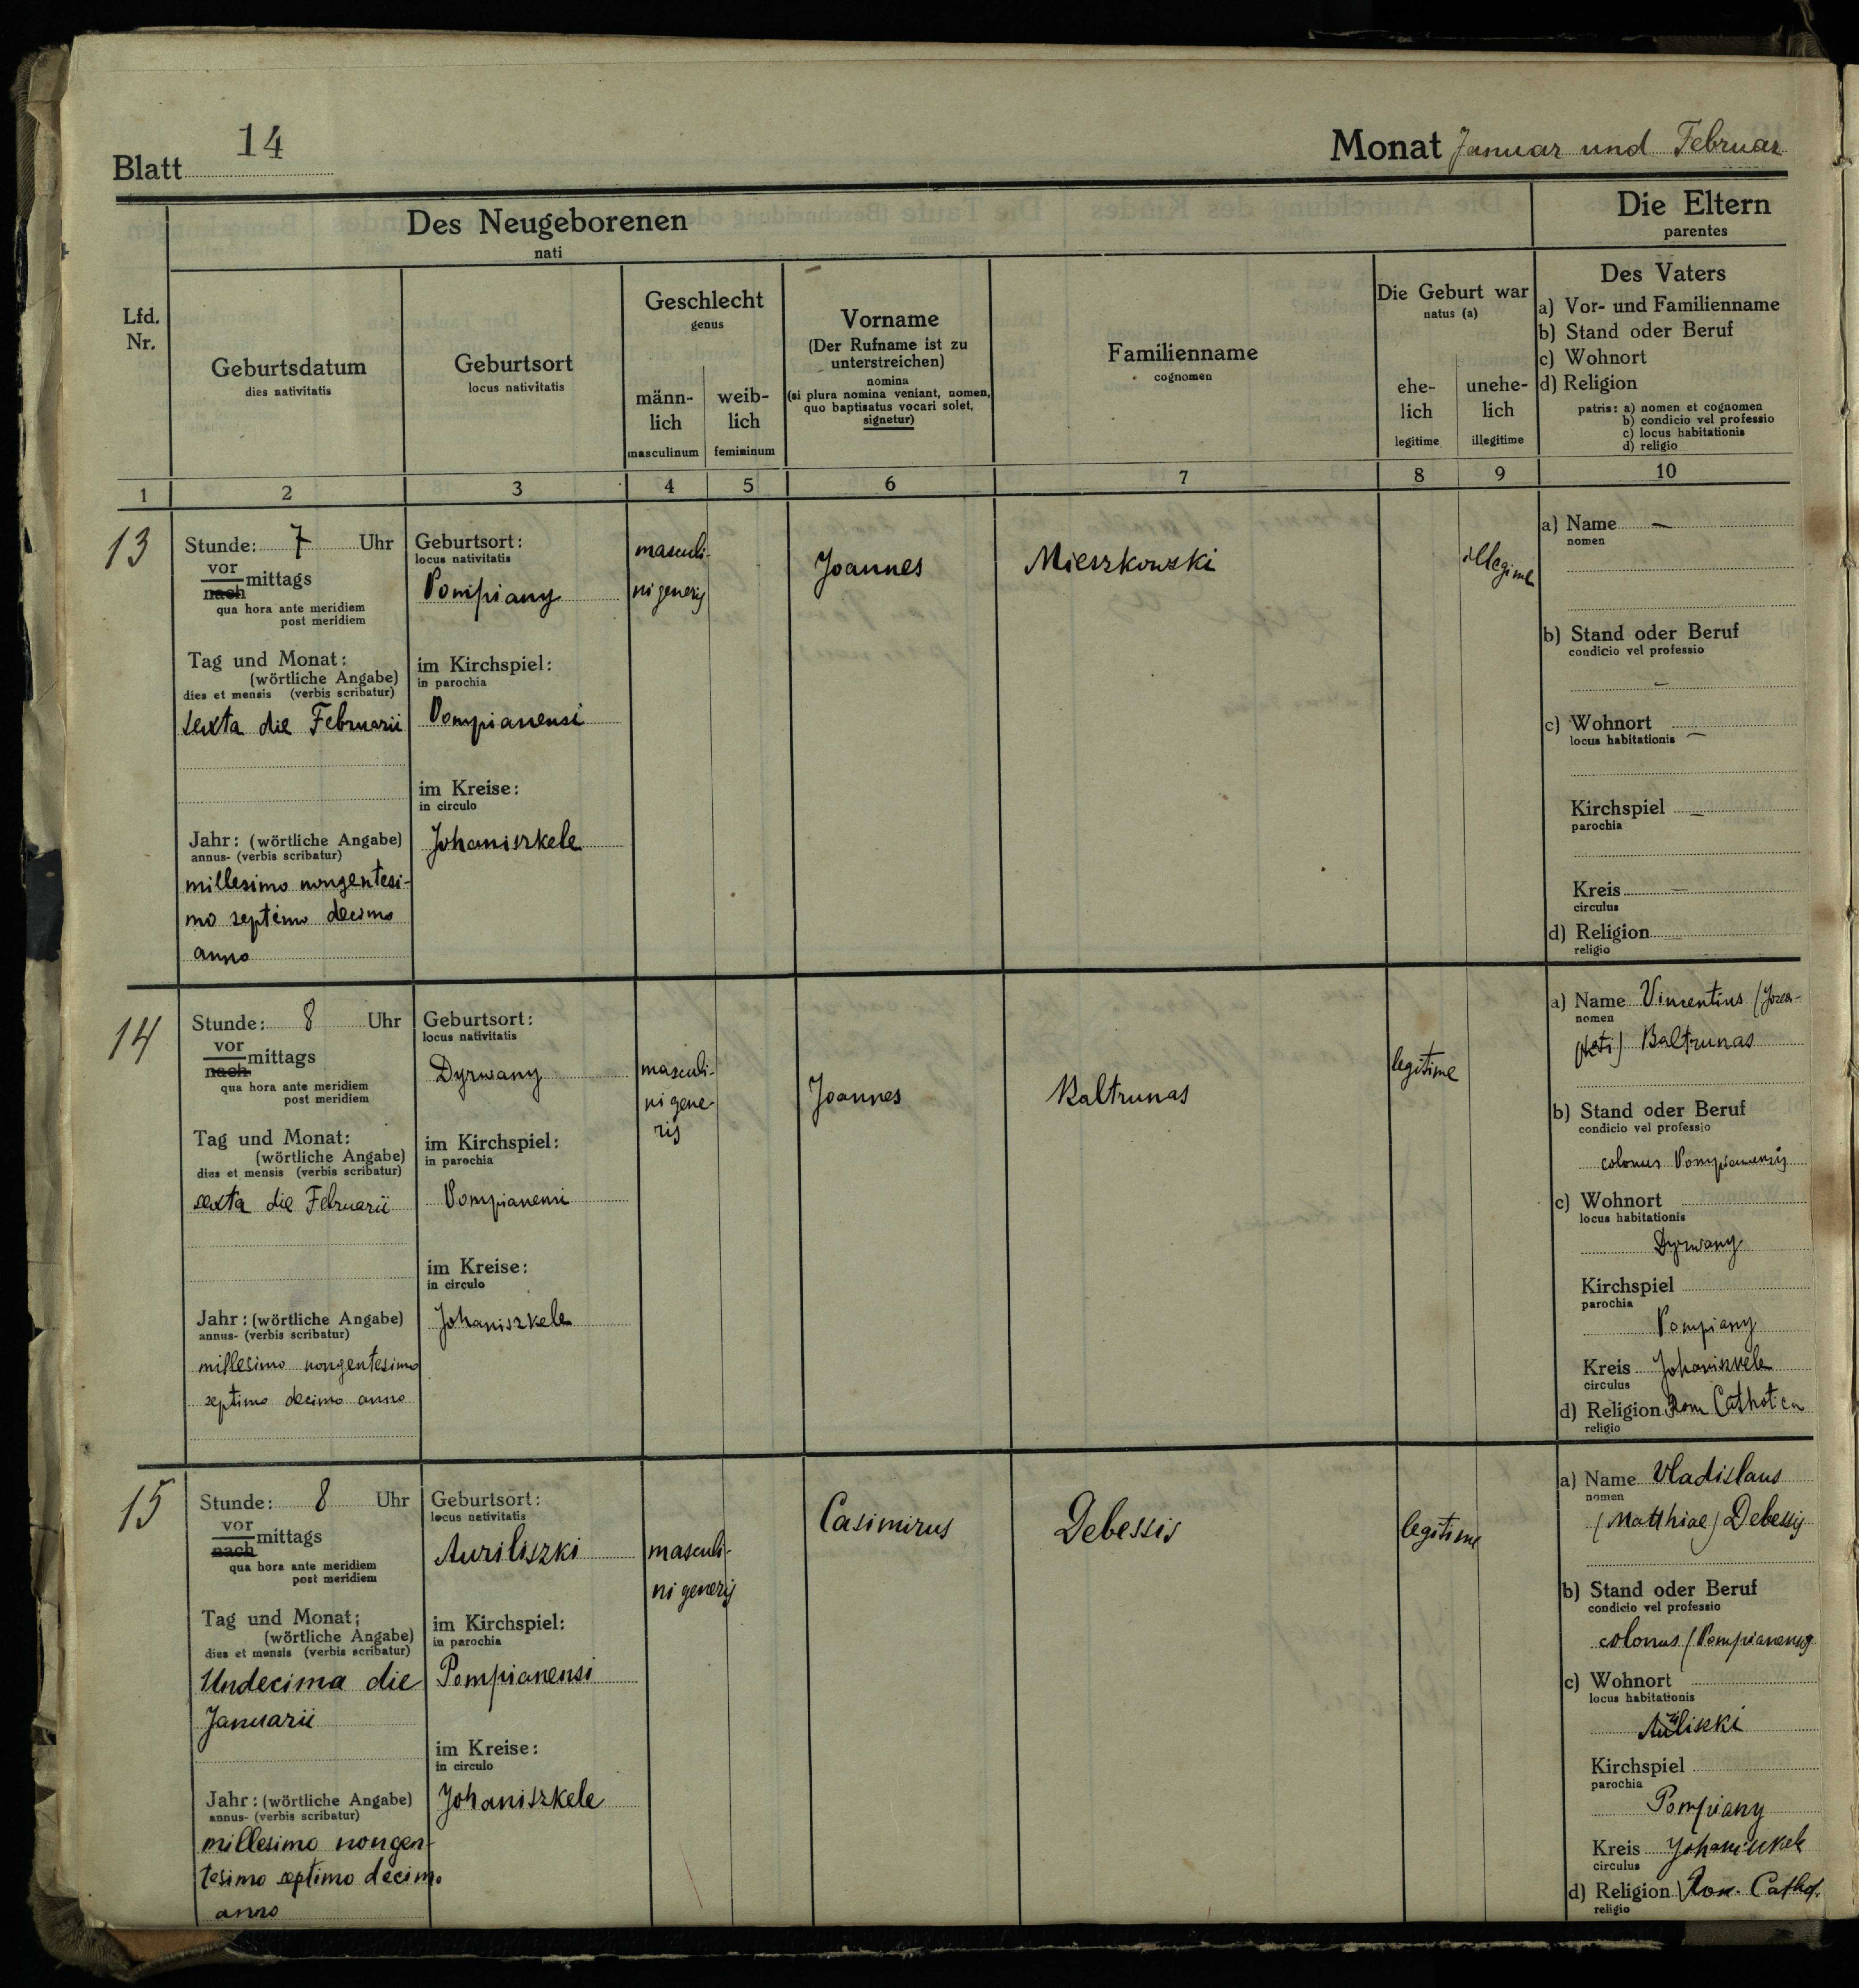 Blatt 14
Monat Januar und Februar
Des Neugeborenen
nati
Die Eltern
parentes
Lfd.
Nr.
Geburtsdatum
dies nativitatis
Geburtsort
locus nativitatis
Geschlecht
genus
männ-
lich
masculinum
weib-
lich
femininum
Vorname
(Der Rufname ist zu
unterstreichen)
nomina
(si plura nomina veniant, nomen,
quo baptisatus vocari solet,
signetur)
Familienname
cognomen
Die Geburt war
natus (a)
ehe-
lich
legitime
unehe-
lich
illegitime
Des Vaters
a) Vor- und Familienname
b) Stand oder Beruf
c) Wohnort
d) Religion
patris: a) nomen et cognomen
b) condicio vel professio
c) locus habitationis
d) religio
1 2 3 4 5 6 7 8 9 10
13
Stunde: 7 Uhr
vor
nach
mittags
qua hora ante meridiem
post meridiem
Tag und Monat:
(wörtliche Angabe)
dies et mensis (verbis scribatur)
sexta die Februarii
Jahr: (wörtliche Angabe)
annus- (verbis scribatur)
millesimo nongentesi-
mo septimo decimo
anno
Geburtsort:
locus nativitatis
Pompiany
im Kirchspiel:
in parochia
Pompianensi
im Kreise:
in circulo
Johaniszkele
masculi-
ni generis
Joannes
Mieszkowski
illegime
a) Name —
nomen
b) Stand oder Beruf
condicio vel professio
—
c) Wohnort
locus habitationis —
Kirchspiel —
parochia
Kreis —
circulus
d) Religion —
religio
14
Stunde: 8 Uhr
vor
nach
mittags
qua hora ante meridiem
post meridiem
Tag und Monat:
(wörtliche Angabe)
dies et mensis (verbis scribatur)
sexta die Februarii
Jahr: (wörtliche Angabe)
annus- (verbis scribatur)
millesimo nongentesimo
septimo decimo anno
Geburtsort:
locus nativitatis
Dyrwany
im Kirchspiel:
in parochia
Pompianensi
im Kreise:
in circulo
Johaniszkele
masculi-
ni gene-
ris
Joannes
Baltrunas
legitime
a) Name Vincentius
nomen
Baltrunas
b) Stand oder Beruf
condicio vel professio
colonus Pompianensis
c) Wohnort
locus habitationis
Dyrwany
Kirchspiel
parochia
Pompiany
Kreis Johaniszkele
circulus
d) Religion Rom Catholica
religio
15
Stunde: 8 Uhr
vor
nach
mittags
qua hora ante meridiem
post meridiem
Tag und Monat:
(wörtliche Angabe)
dies et mensis (verbis scribatur)
Undecima die
Januarii
Jahr: (wörtliche Angabe)
annus- (verbis scribatur)
millesimo nongen-
tesimo septimo decimo
anno
Geburtsort:
locus nativitatis
Auriliszki
im Kirchspiel:
in parochia
Pompianensi
im Kreise:
in circulo
Johaniszkele
masculi-
ni generis
Casimirus
Debessis
legitime
a) Name Vladislaus
nomen
(Matthiae) Debessis
b) Stand oder Beruf
condicio vel professio
colonus (Pompianensis
c) Wohnort
locus habitationis
Kirchspiel
parochia
Pompiany
Kreis Johaniszkele
circulus
d) Religion Rom. Cathol.
religio